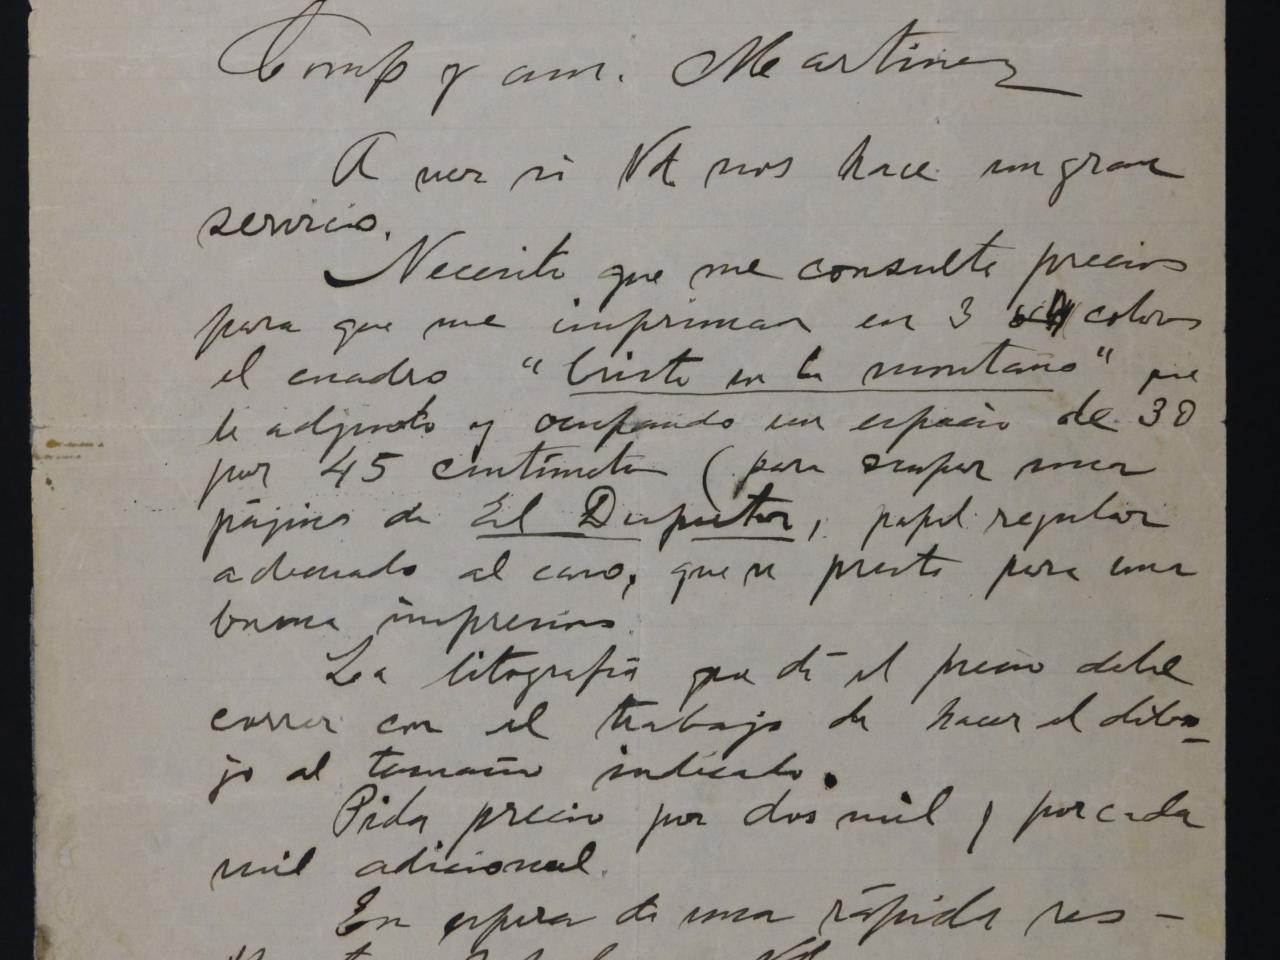 Comp y am. Martinez
A ver si Vd. nos hace un gran
servicio.
Necesito que me consulte precios
para que me impriman en 3 colores
el cuadro "Cristo en la montaña" que
le adjunto y ocupando un espacio de 30
por 45 centimetros (para ocupar una
página de El Despertar, papel regular
adecuado al caso, que se preste para una
buena impresion.
La litografia que dé el precio debe
correr con el trabajo de hacer el dibu-
jo al tamaño indicado.
Pida precio por dos mil y por cada
mil adicional.
En espera de una rápida res-